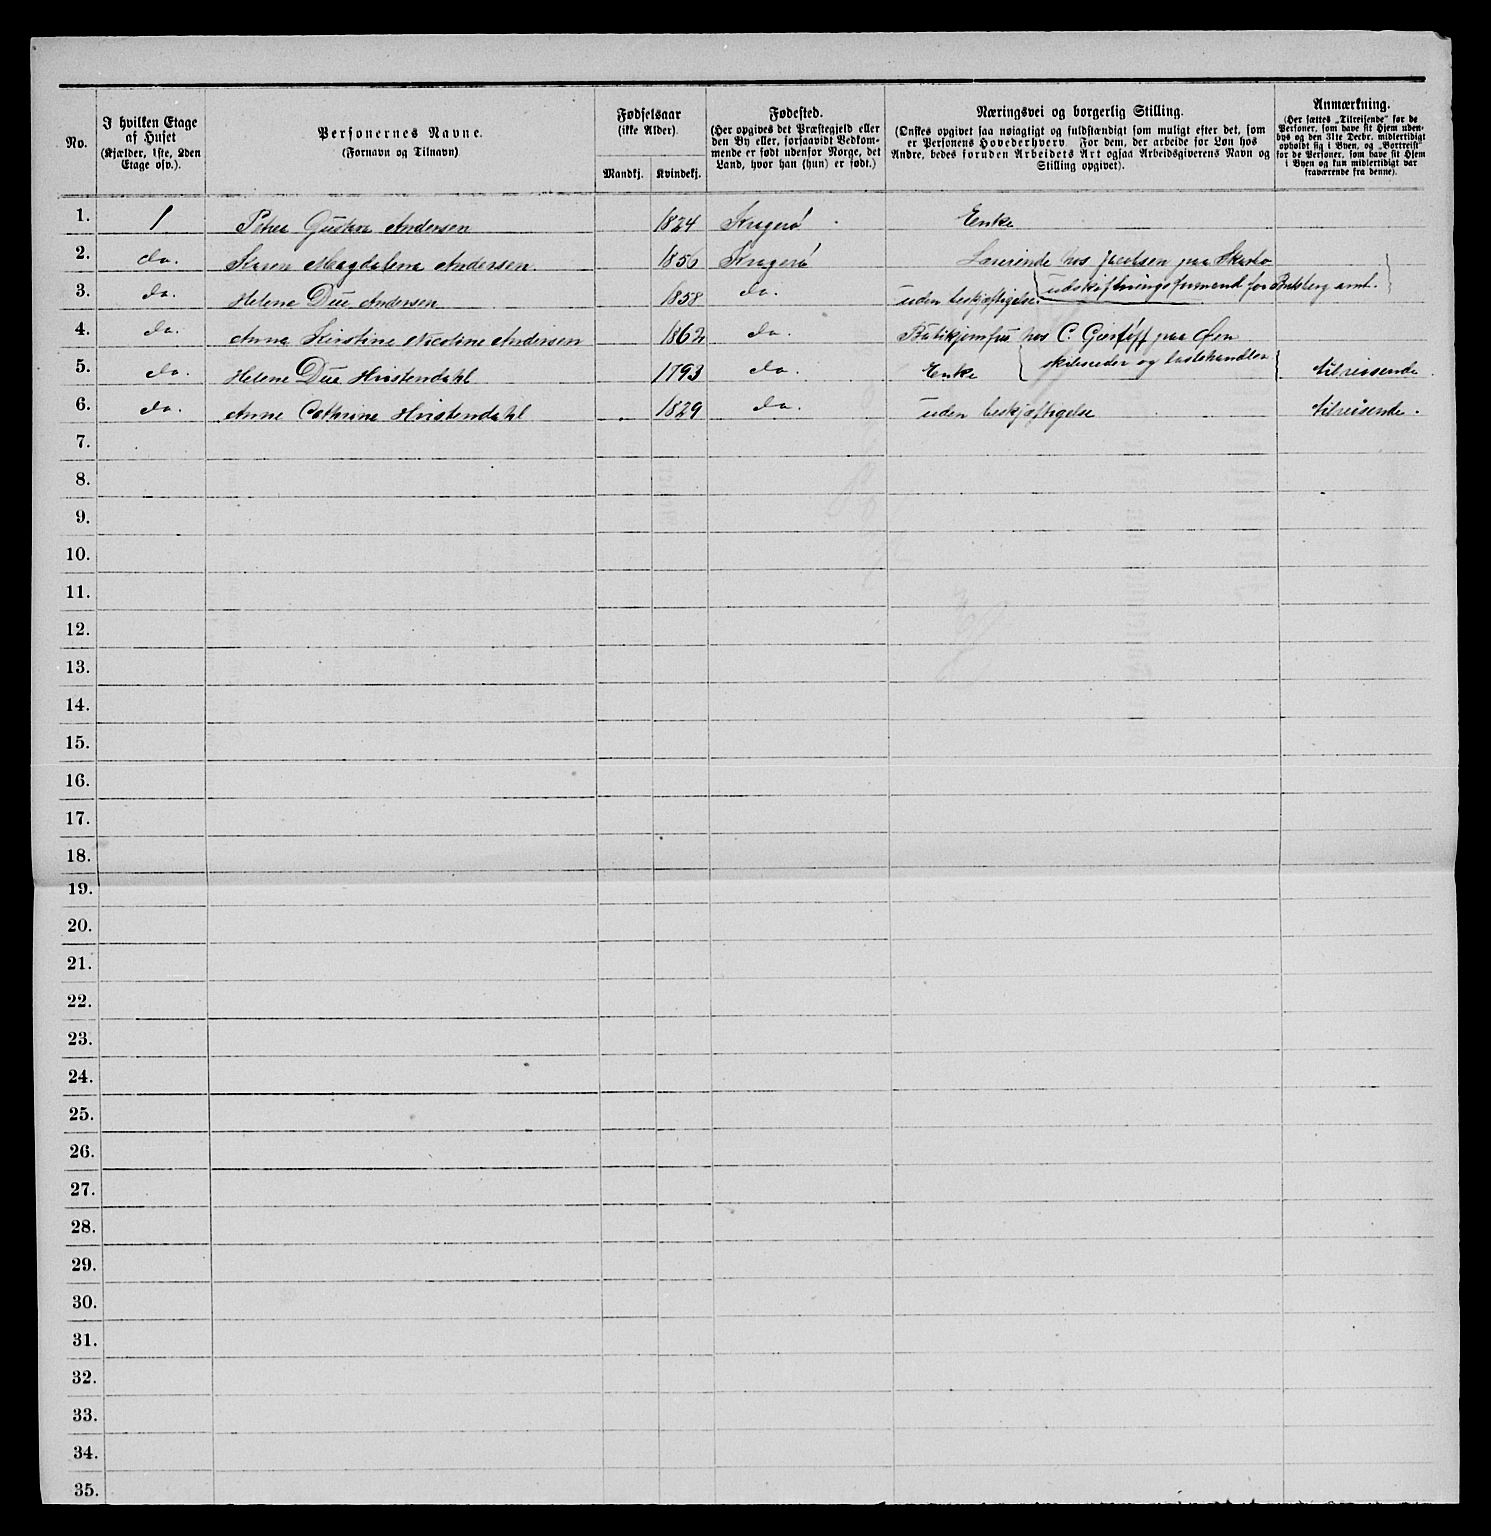 No.
I hvilken Etage af Huset (Kjælder, 1ste, 2den Etage osv.).
Personernes Navne. (Fornavn og Tilnavn)
Fødselsaar (ikke Alder)
Mandkj. Kvindekj.
Fødested. (Her opgives det Præstegjeld eller den By eller, forsaavidt Vedkommende er født udenfor Norge, det Land, hvor han (hun) er født.)
Næringsvei og borgerlig Stilling. (Ønskes opgivet saa nøiagtigt og fuldstændigt som muligt efter det, som er Personens Hovederhverv. For dem, der arbeide for Løn hos Andre, bedes foruden Arbeidets Art ogsaa Arbeidsgiverens Navn og Stilling opgivet).
Anmærkning. (Her sættes "Tilreisende" for de Personer, som have sit Hjem udenbys og den 31te Decbr. midlertidigt opholdt sig i Byen, og "Bortreist" for de Personer, som have sit Hjem i Byen og kun midlertidigt var fraværende fra denne).
1. 1 Petrea Gustava Andersen 1824 Kragerö Enke
2. do. Karen Magdalena Andersen 1856 Kragerö Lærerinde hos Jacobsen paa
udskiftningsformand for Bratsberg amt.
3. do. Helene Due Andersen 1858 do. uden beskjæftigelse
4. do. Anna Kirstine Nicoline Andersen 1862 do. Butikjomfru hos C. paa Øen
skibsreder og handler
5. do. Helene Due Hvistendahl 1793 do. Enke tilreisende
6. do. Anne Cathrine Hvistendahl 1829 do. uden beskjæftigelse tilreisende.
7.
8.
9.
10.
11.
12.
13.
14.
15.
16.
17.
18.
19.
20.
21.
22.
23.
24.
25.
26.
27.
28.
29.
30.
31.
32.
33.
34.
35.